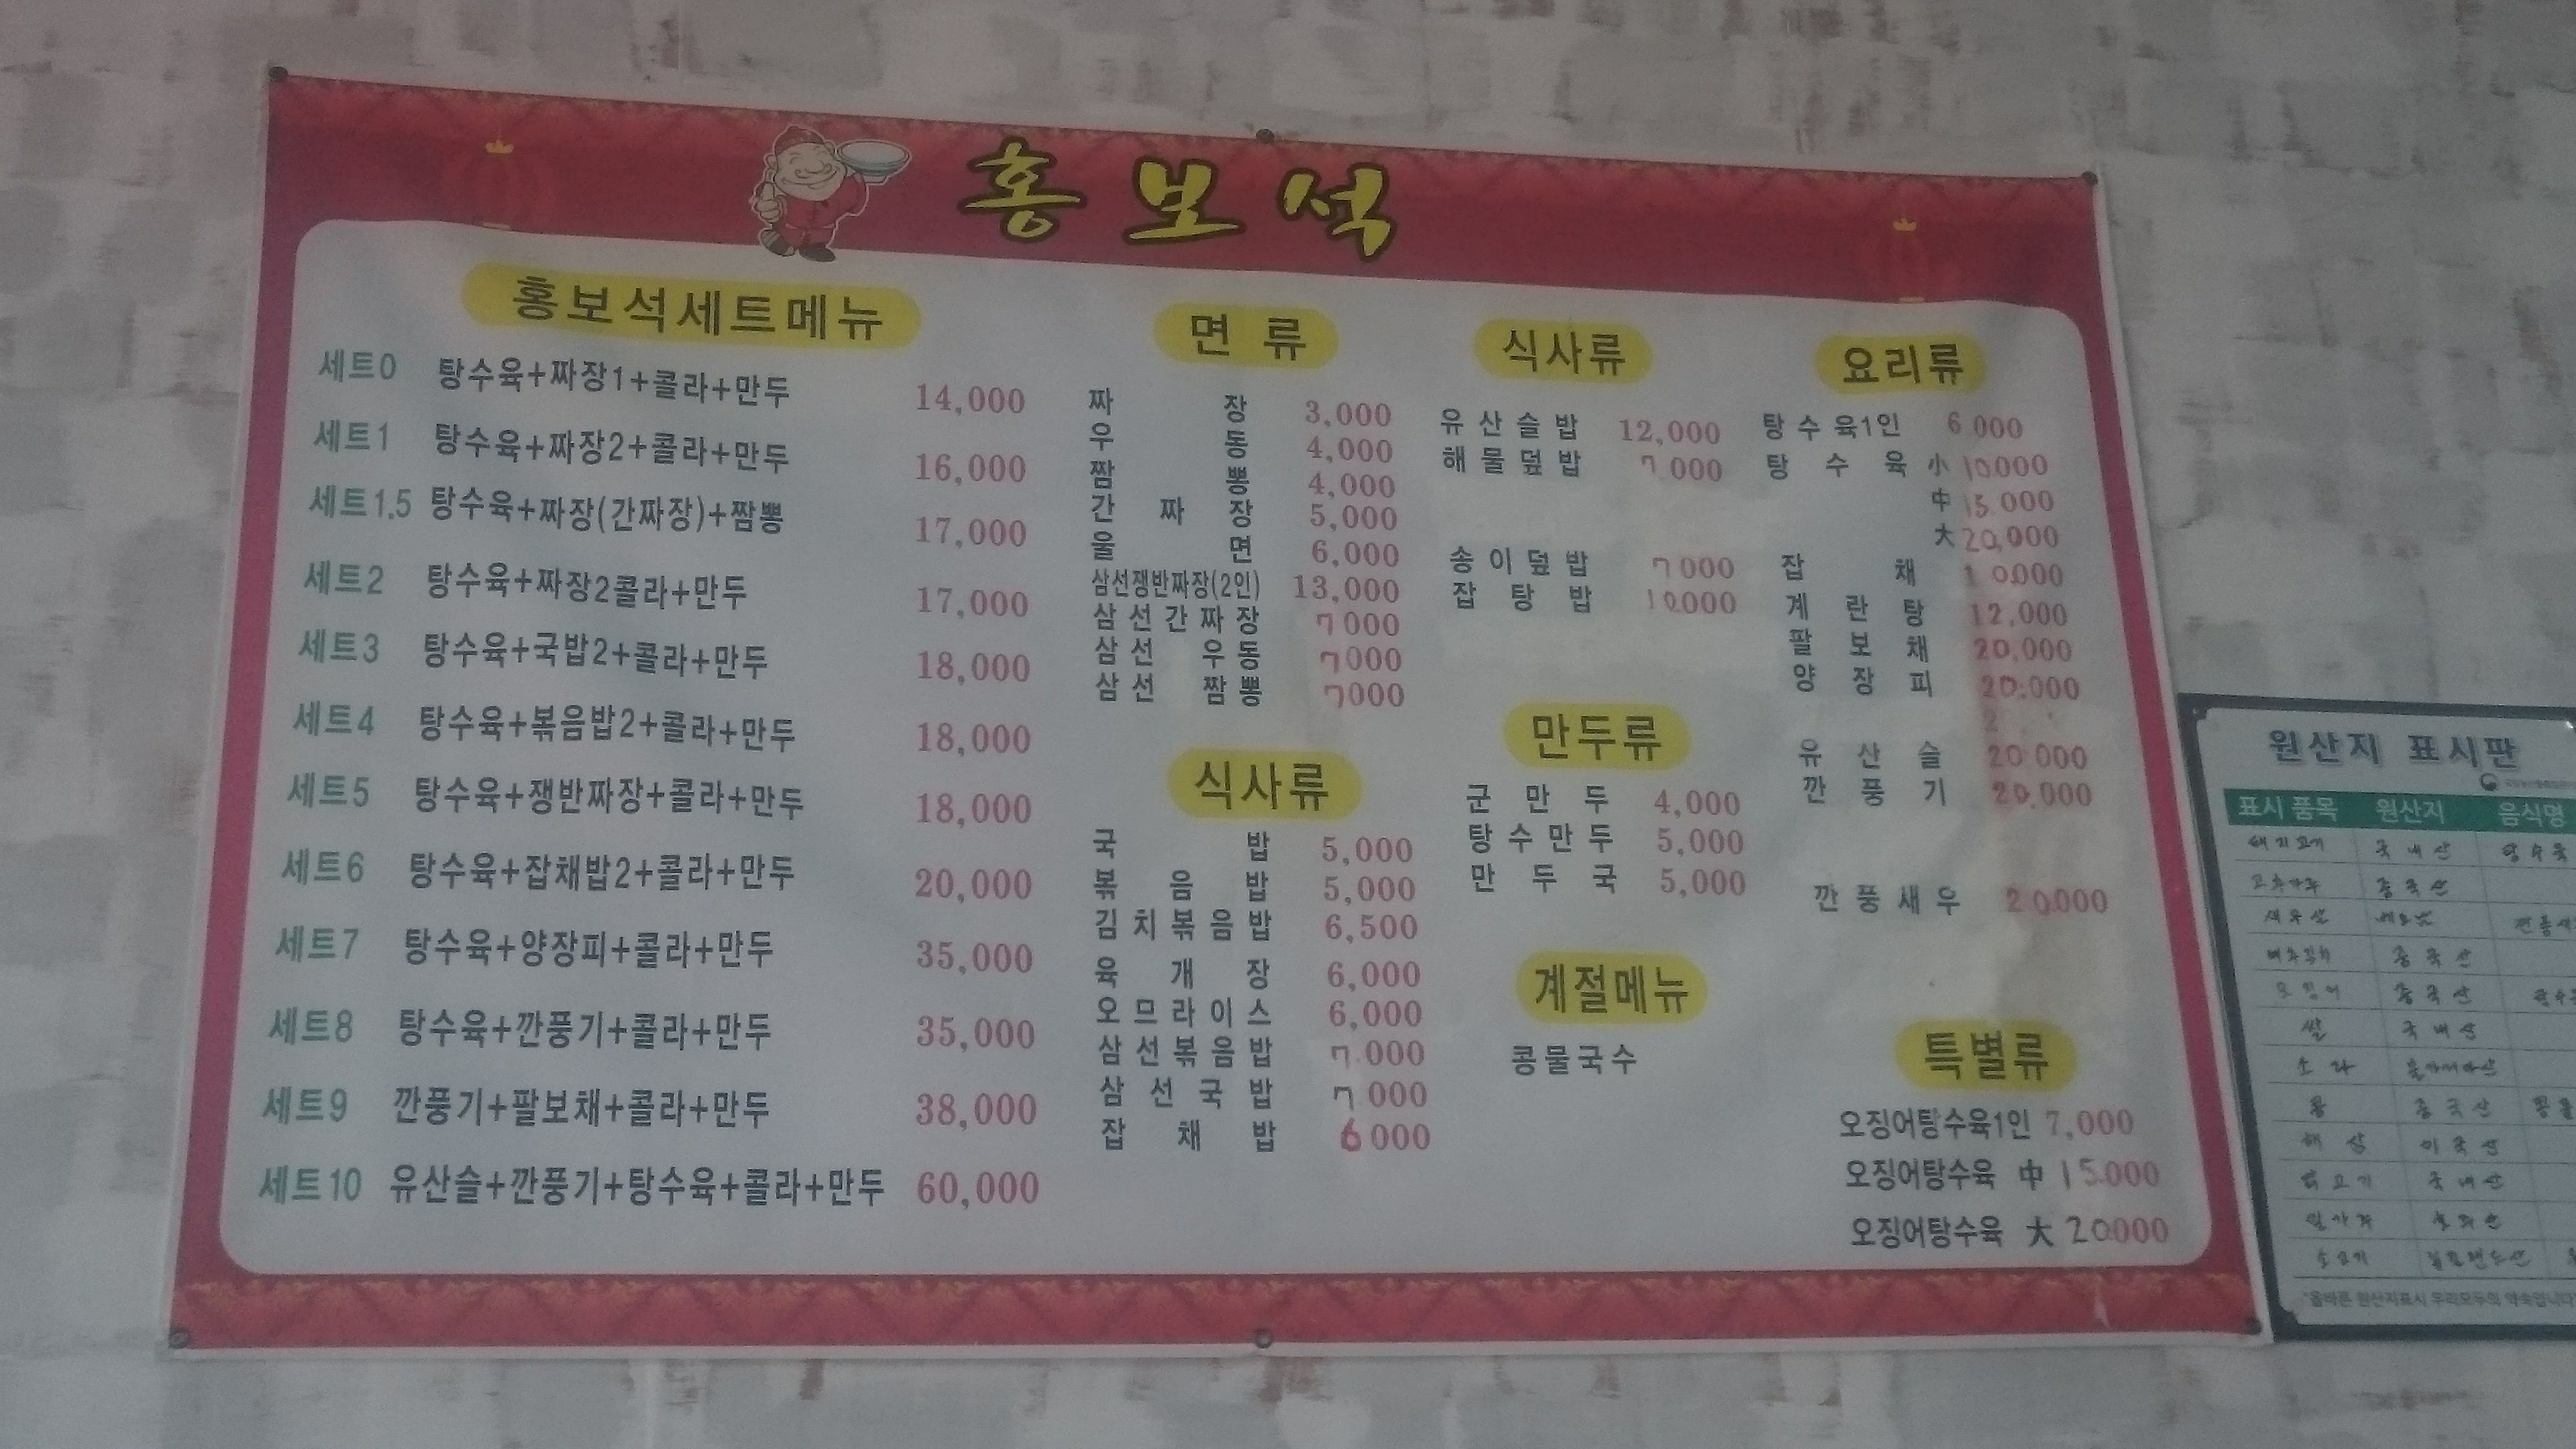 홍보석
홍보석세트메뉴
세트0 탕수육+짜장1+콜라+만두 14,000
세트1 탕수육+짜장2+콜라+만두 16,000
세트1.5 탕수육+짜장(간짜장)+짬뽕 17,000
세트2 탕수육+짜장2콜라+만두 17,000
세트3 탕수육+국밥2+콜라+만두 18,000
세트4 탕수육+볶음밥2+콜라+만두 18,000
세트5 탕수육+쟁반짜장+콜라+만두 18,000
세트6 탕수육+잡채밥2+콜라+만두 20,000
세트7 탕수육+양장피+콜라+만두 35,000
세트8 탕수육+깐풍기+콜라+만두 35,000
세트9 깐풍기+팔보채+콜라+만두 38,000
세트10 유산슬+깐풍기+탕수육+콜라+만두 60,000
면 류
짜 장 3,000
우 동 4,000
짬 뽕 4,000
간 짜 장 5,000
울 면 6,000
삼선쟁반짜장(2인) 13,000
삼선간짜장 7000
삼선 우동 7000
삼선 짬뽕 7000
식사류
국 밥 5,000
볶 음 밥 5,000
김치볶음밥 6,500
육 개 장 6,000
오므라이스 6,000
삼선볶음밥 7.000
삼선국밥 7000
잡 채 밥 6000
식사류
유산슬밥 12,000
해물덮밥 7000
송이덮밥 7000
잡 탕 밥 10000
만두류
군 만 두 4,000
탕수만두 5,000
만 두 국 5,000
계절메뉴
콩물국수
요리류
탕수육1인 6000
탕 수 육 小 10000
中 15.000
大 20,000
잡 채 10000
계 란 탕 12,000
팔 보 채 20,000
양 장 피 20.000
유 산 슬 20.000
깐 풍 기 20,000
깐풍새우 20000
특별류
오징어탕수육1인 7,000
오징어탕수육 中 15.000
오징어탕수육 大 20000
원산지 표시판
표시 품목 원산지 음식명
돼지고기 국내산 탕수육
고추가루 중국산
새우살
배추김치 중국산
오징어 중국산
쌀 국내산
소라
콩 중국산
해삼 미국산
닭고기 국내산
밀가루 호주산
소고기
"올바른 원산지표시 우리모두의 약속입니다